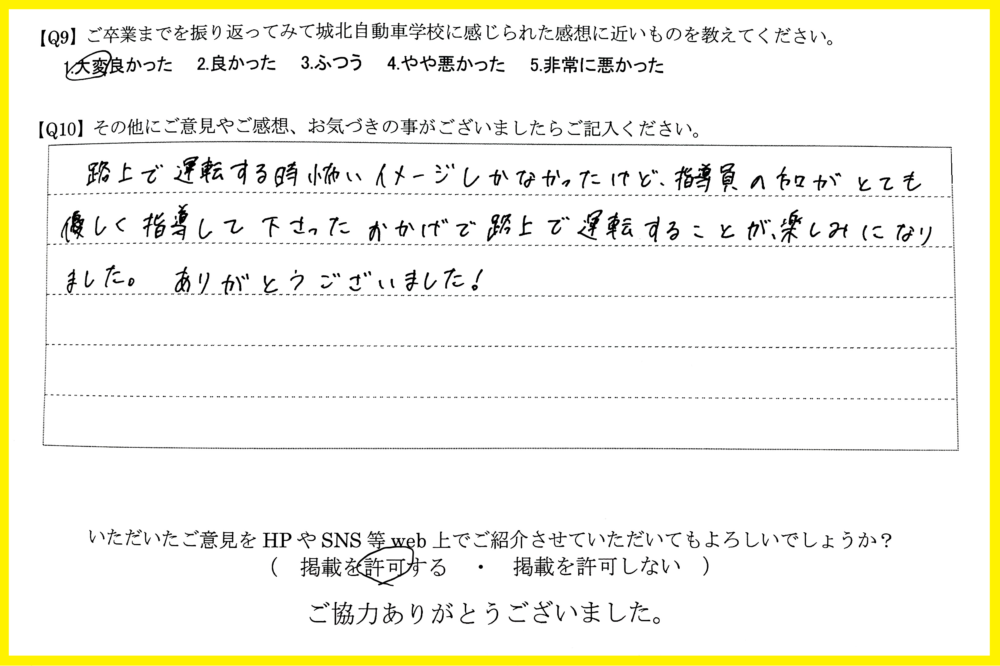 【Q9】ご卒業までを振り返ってみて城北自動車学校に感じられた感想に近いものを教えてください。
1.大変良かった 2.良かった 3.ふつう 4.やや悪かった 5.非常に悪かった
【Q10】その他にご意見やご感想、お気づきの事がございましたらご記入ください。
路上で運転する時怖いイメージしかなかったけど、指導員の方々がとても
優しく指導して下さったおかげで路上で運転することが、楽しみになり
ました。ありがとうございました!
いただいたご意見をHPやSNS等web上でご紹介させていただいてもよろしいでしょうか？
（ 掲載を許可する ・ 掲載を許可しない ）
ご協力ありがとうございました。